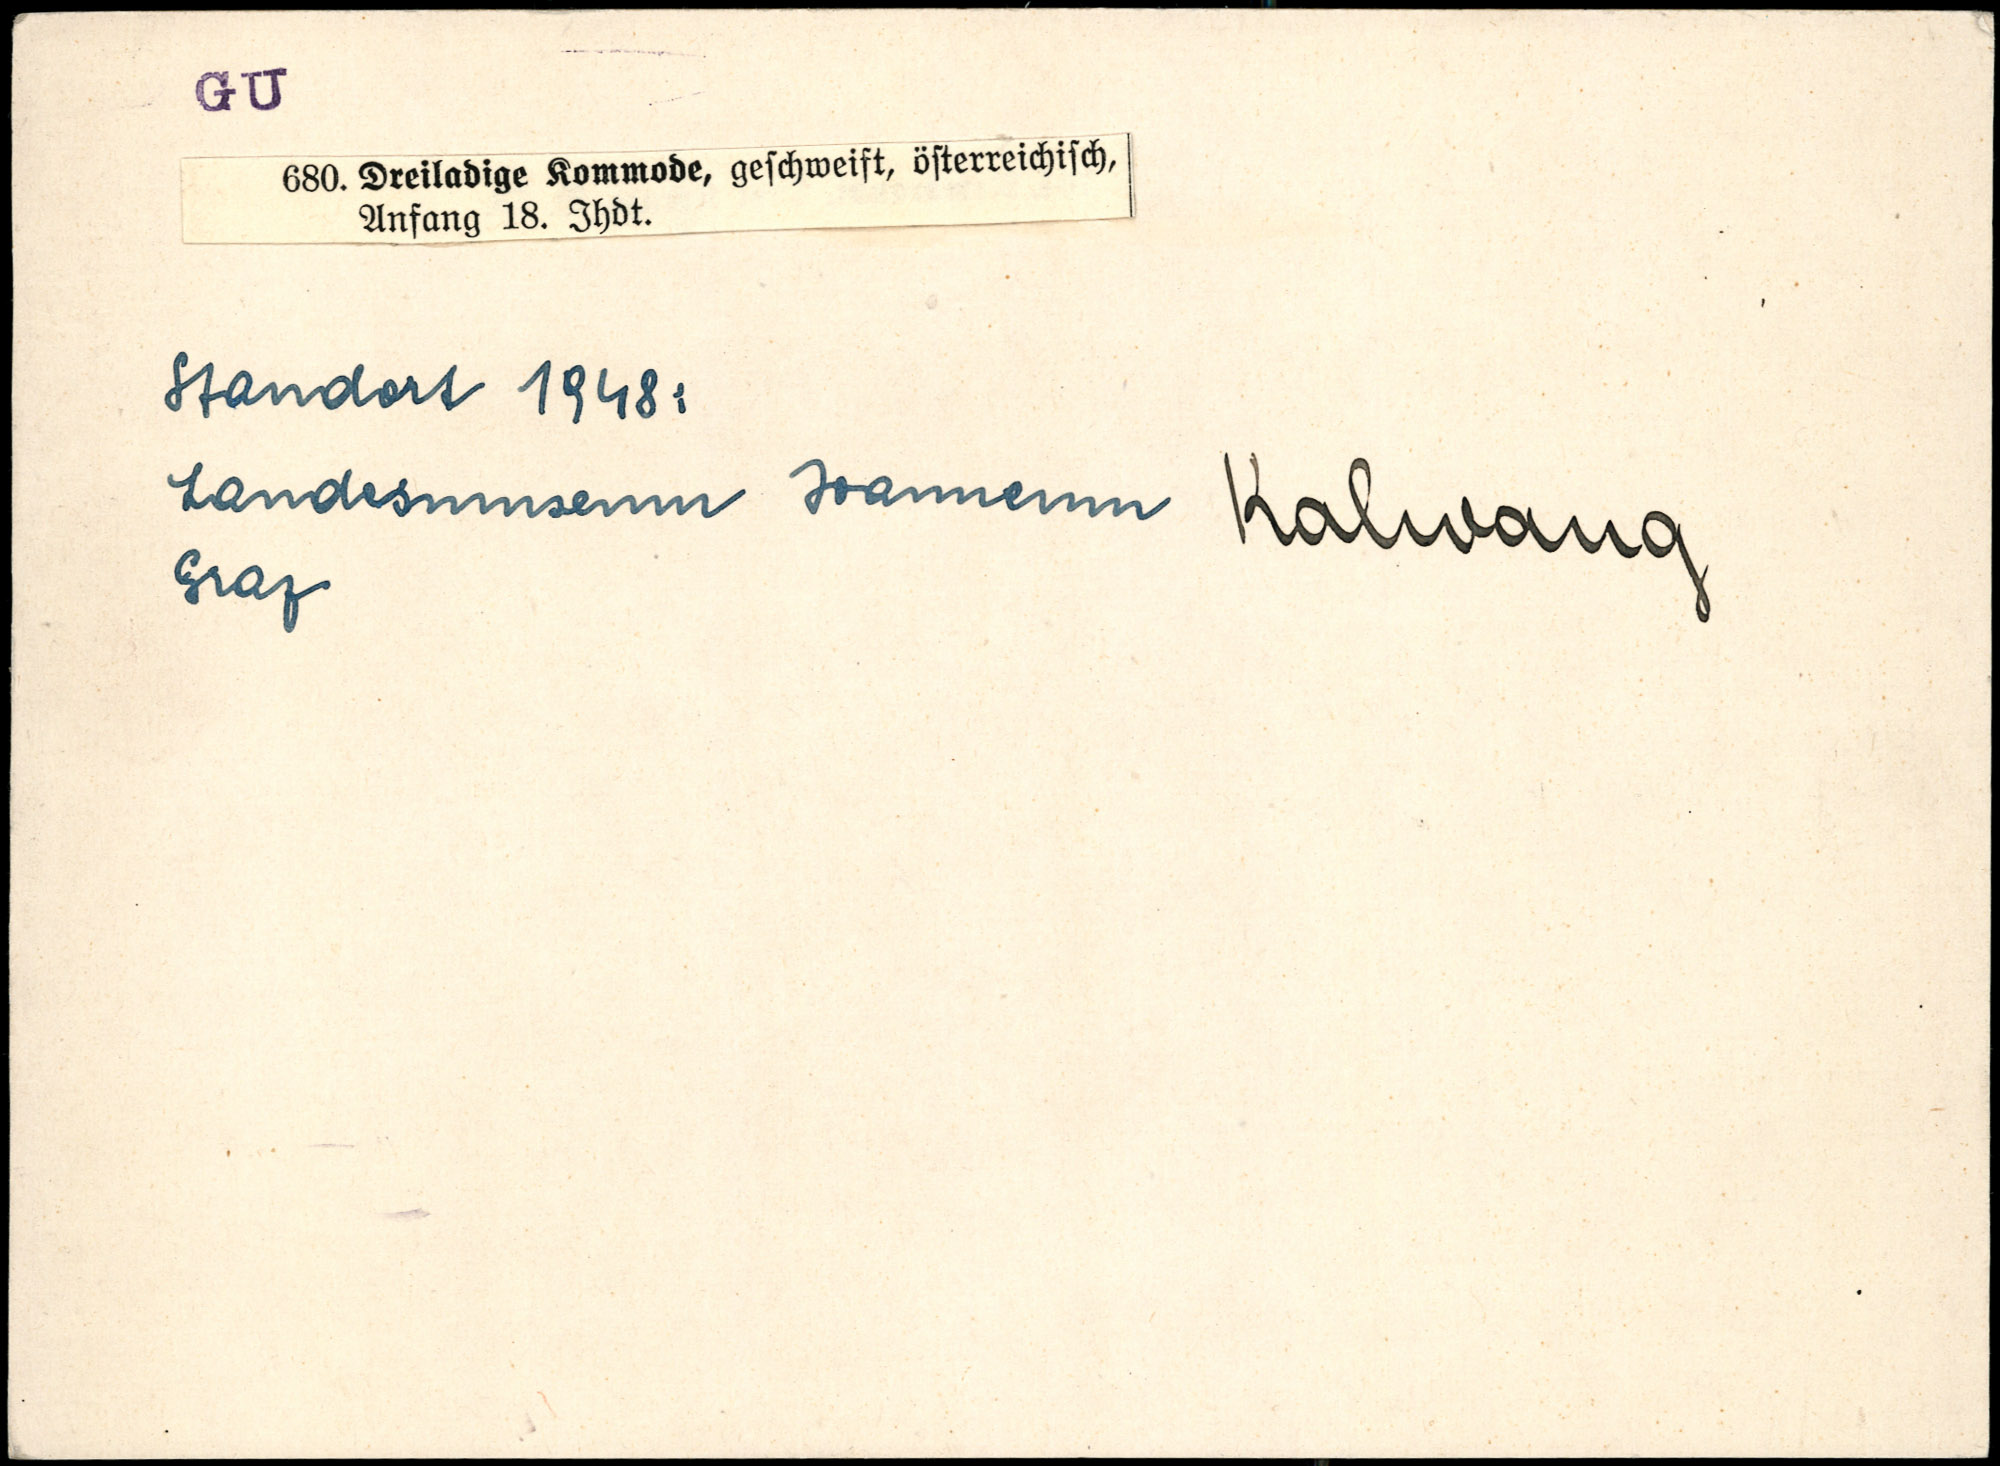 GU
680. Dreiladige Kommode, geschweift, österreichisch,
Anfang 18. Jhdt.
Standort 1948:
Landesmuseum Joanneum Kalwang
Graz